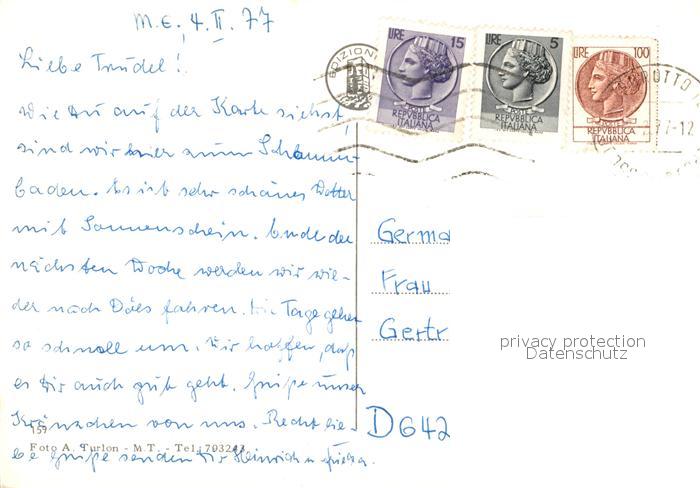 M.E., 4. II. 77
Liebe Trudel!
Wie du auf der Karte siehst,
sind wir hier zum Schlamm-
baden. Es ist sehr schönes Wetter
mit Sonnenschein. Ende der
nächsten Woche werden wir wie-
der nach fahren. Die Tage gehen
so schnell um. Wir hoffen, daß
es Dir auch gut geht. Grüße unser
Kränzchen von uns. Recht lie-
be Grüße senden Dir Heinrich u.
159
Foto A. Turlon - M.T. - Tel. 793243
EDIZIONI
LIRE 15
POSTE
REPVBBLICA
ITALIANA
LIRE 5
POSTE
REPVBBLICA
ITALIANA
LIRE 100
POSTE
REPVBBLICA
ITALIANA
Germa
Frau
Gertr
D 642
privacy protection
Datenschutz